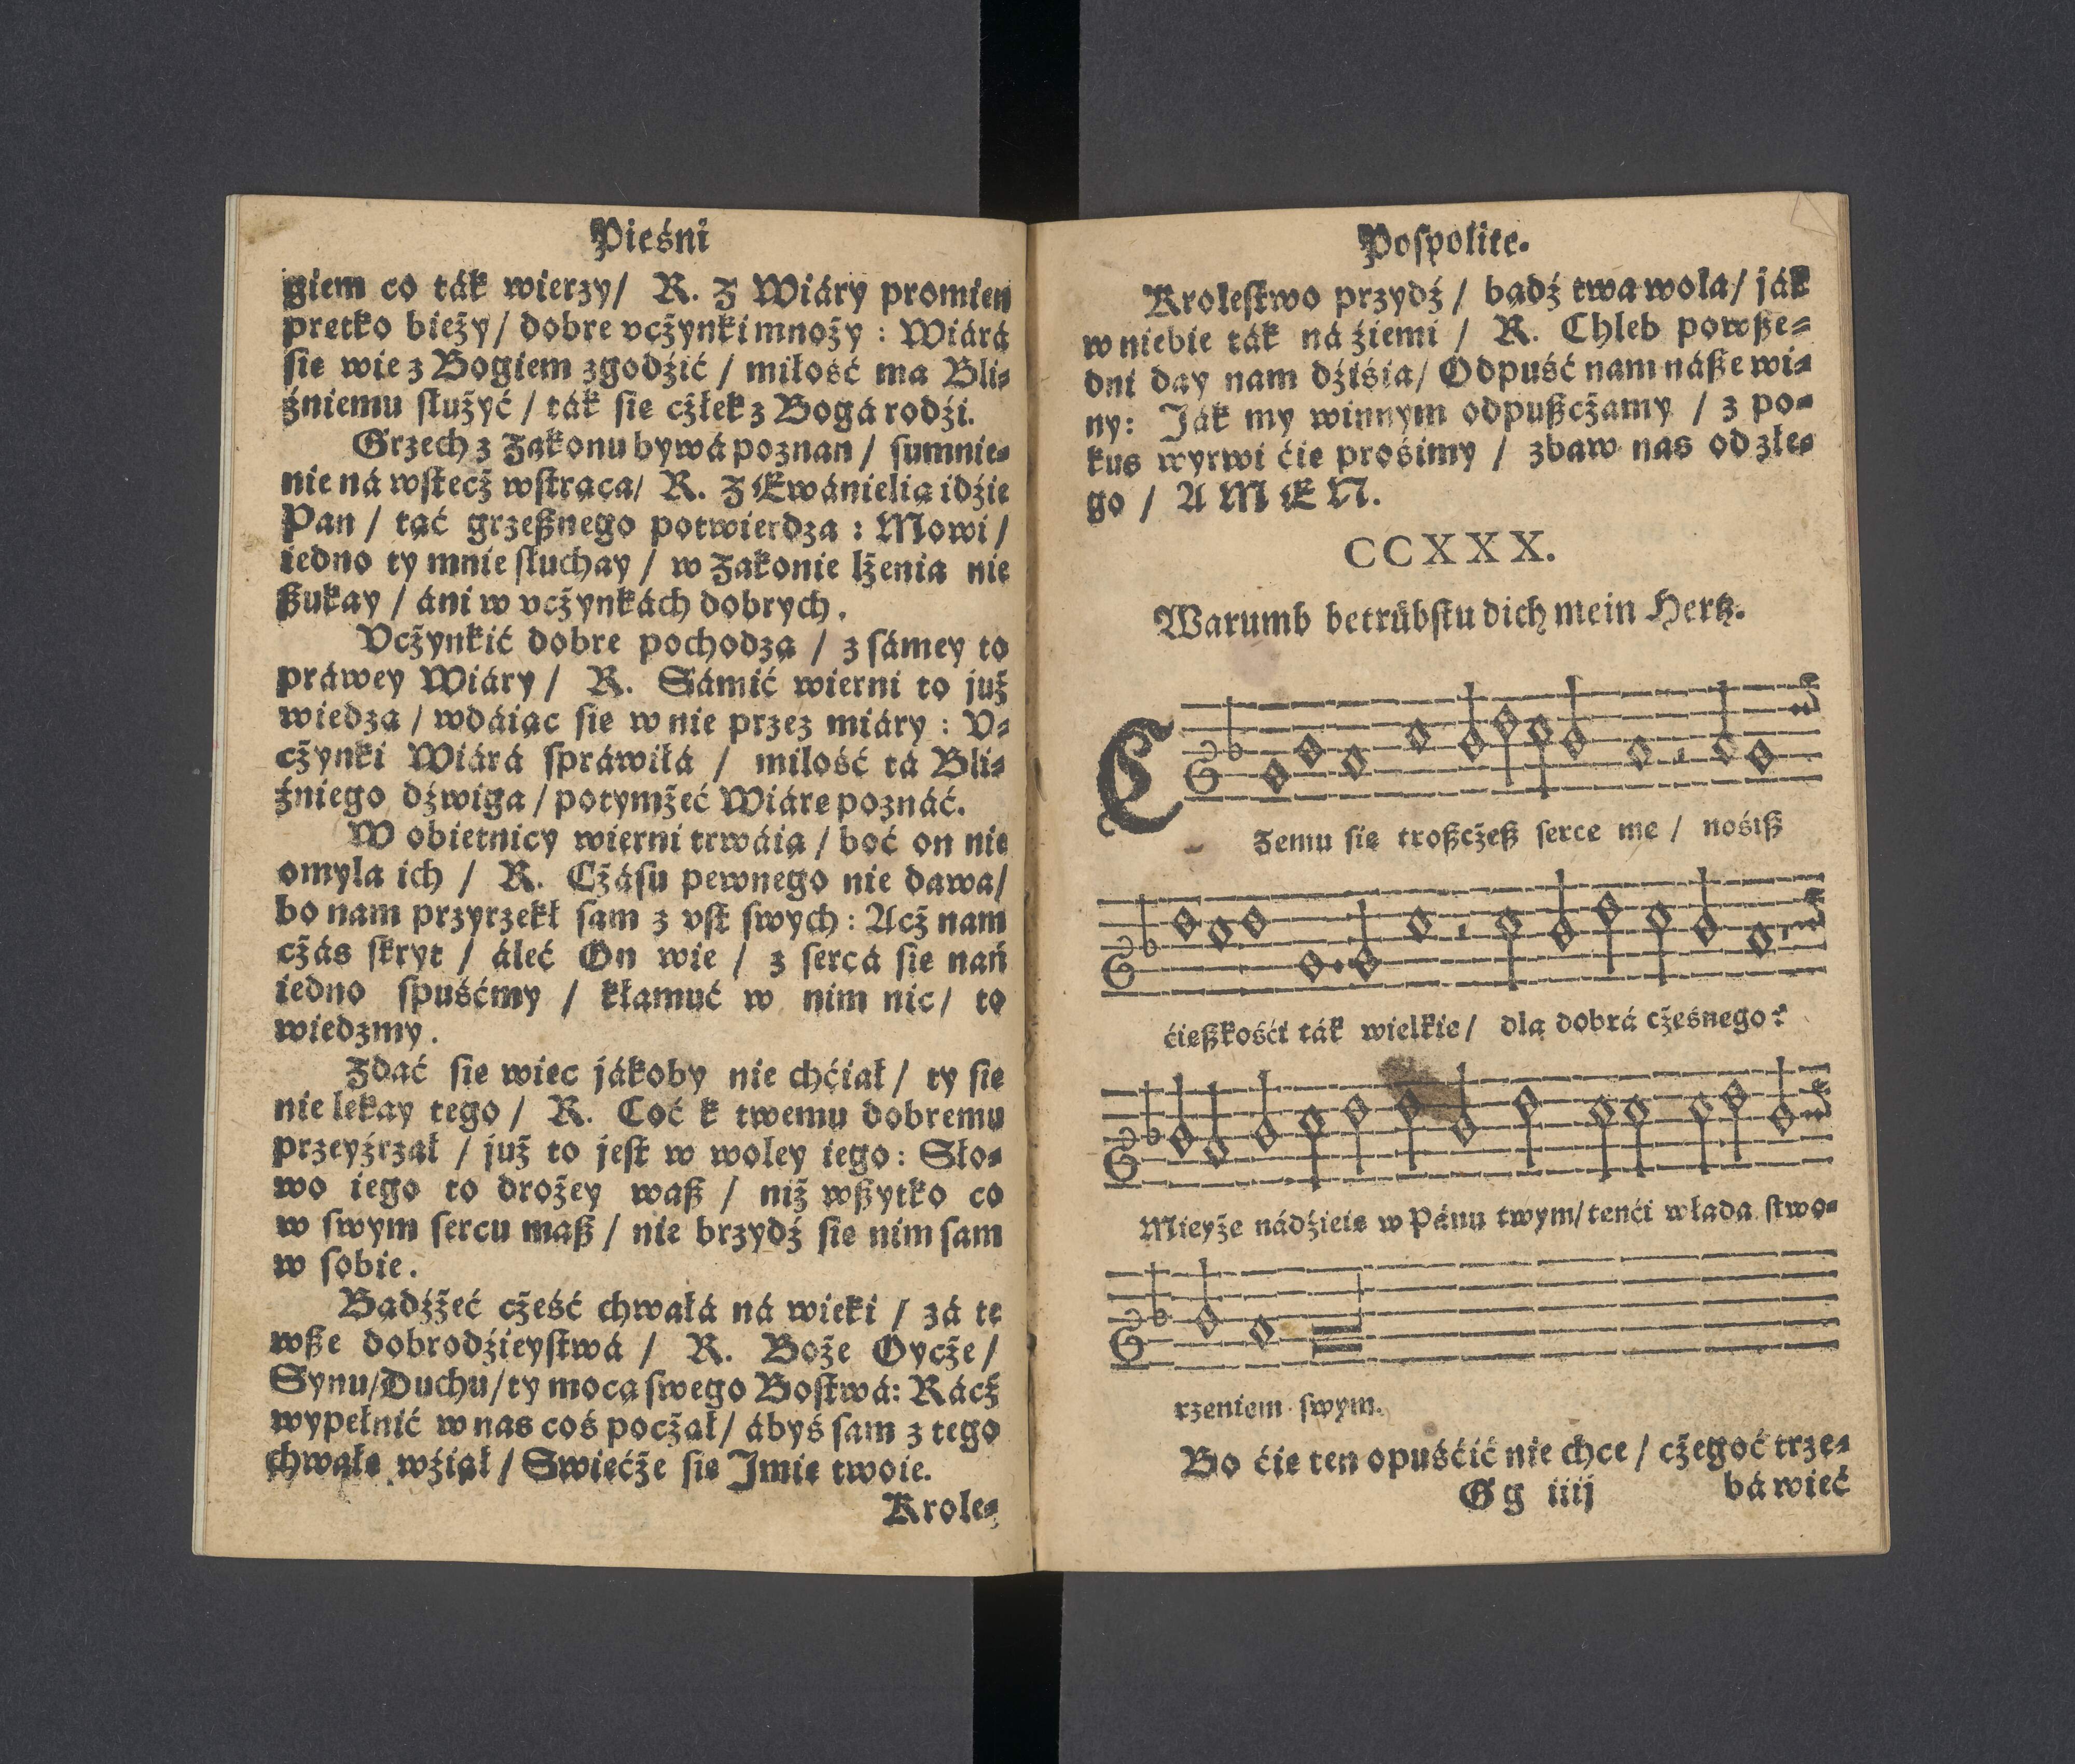 Pieśni
giem co ták wierzy/ R. Z Wiáry promien
pretko bieży/ dobre vcżynki mnoży : Wiárá
sie wie z Bogiem zgodźić / miłość ma Bli-
źniemu służyć / ták sie cżłek z Bogá rodźi.
Grzech z Zakonu bywá poznan / sumnie-
nie ná wstecż wstraca/ R. Z Ewánielią idźie
Pan / tąć grzeßnego potwierdza : Mowi /
iedno ty mnie słuchay / w Zakonie lżenia nie
ßukay / áni w vcżynkách dobrych.
Vcżynkić dobre pochodzą / z sámey to
práwey Wiáry / R. Sámić wierni to już
wiedzą / wdáiąc sie w nie przez miáry : V-
cżynki Wiárá spráwiłá / miłość tá Bli-
źniego dźwiga / potymżeć Wiáre poznáć.
W obietnicy wierni trwáią / boć on nie
omyla ich / R. Cżásu pewnego nie dawa/
bo nam przyrzekł sam z vst swych : Acż nam
cżás skryt / áleć On wie / z sercá sie nań
iedno spuśćmy / kłamuć w nim nic / to
wiedzmy.
Zdáć sie wiec jákoby nie chćiał / ty sie
nie lękay tego / R. Coć k twemu dobremu
przeyźrzał / już to jest w woley iego : Sło-
wo iego to drożey waß / niż wßytko co
w swym sercu maß / nie brzydź sie nim sam
w sobie.
Bądźżeć cżeść chwałá ná wieki / zá te
wße dobrodźieystwá / R. Boże Oycże /
Synu/Duchu/ty mocą swego Bostwá: Rácż
wypełnić w nas coś pocżął/ ábyś sam z tego
chwałę wźiął / Swięćże sie Jmię twoie.
Krole-
Pospolite.
Krolestwo przydź / bądź twa wola/ ják
w niebie ták ná źiemi / R. Chleb powße-
dni day nam dźiśia/ Odpuść nam náße wi-
ny: Ják my winnym odpußcżamy / z po-
kus wyrwi ćie prośimy / zbaw nas od złe-
go / AMEN.
CCXXX.
Warumb betrübstu dich mein Hertz.
CZemu się troßcżeß serce me / nośiß
ćießkośći ták wielkie/ dla dobrá cżesnego?
Mieyże nádźieię w Pánu twym/ tenći włada stwo-
rzeniem swym.
Bo ćie ten opuśćić nie chce / cżegoć trze-
Gg iiij
bá wieć